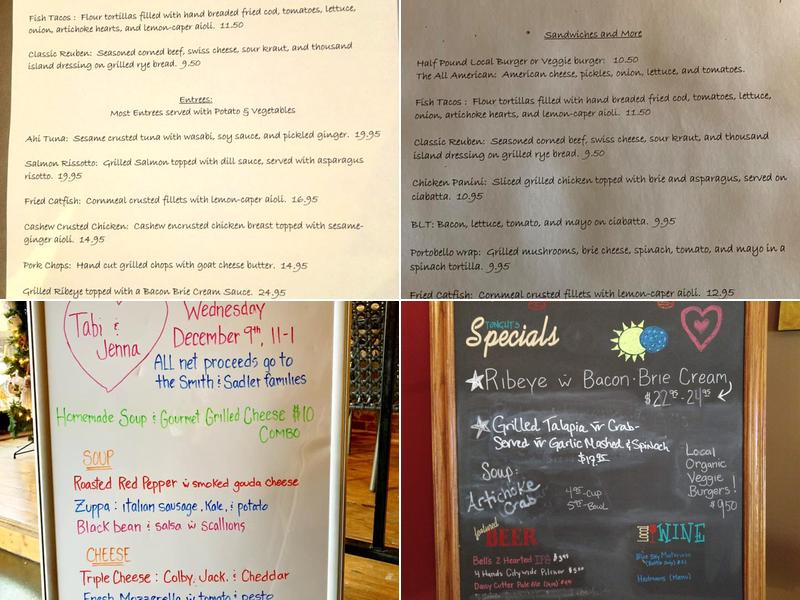 Fish Tacos : Flour tortillas filled with hand breaded fried cod, tomatoes, lettuce,
onion, artichoke hearts, and lemon-caper aioli. 11.50
Classic Reuben: Seasoned corned beef, swiss cheese, sour kraut, and thousand
island dressing on grilled rye bread. 9.50
Entrees:
Most Entrees served with Potato & Vegetables
Ahi Tuna: Sesame crusted tuna with wasabi, soy sauce, and pickled ginger. 19.95
Salmon Rissotto: Grilled Salmon topped with dill sauce, served with asparagus
risotto. 19.95
Fried Catfish: Cornmeal crusted fillets with lemon-caper aioli. 16.95
Cashew Crusted Chicken: Cashew encrusted chicken breast topped with sesame-
ginger aioli. 14.95
Pork Chops: Hand cut grilled chops with goat cheese butter. 14.95
Grilled Ribeye topped with a Bacon Brie Cream Sauce. 24.95
Sandwiches and More
Half Pound Local Burger or Veggie burger: 10.50
The All American: American cheese, pickles, onion, lettuce, and tomatoes.
Fish Tacos : Flour tortillas filled with hand breaded fried cod, tomatoes, lettuce,
onion, artichoke hearts, and lemon-caper aioli. 11.50
Classic Reuben: Seasoned corned beef, swiss cheese, sour kraut, and thousand
island dressing on grilled rye bread. 9.50
Chicken Panini: Sliced grilled chicken topped with brie and asparagus, served on
ciabatta. 10.95
BLT: Bacon, lettuce, tomato, and mayo on ciabatta. 9.95
Portobello wrap: Grilled mushrooms, brie cheese, spinach, tomato, and mayo in a
spinach tortilla. 9.95
Fried Catfish: Cornmeal crusted fillets with lemon-caper aioli. 12.95
Tabi &
Jenna
Wednesday
December 9th, 11-1
ALL net proceeds go to
the Smith & Sadler families
Homemade Soup & Gourmet Grilled Cheese $10
Combo
SOUP
Roasted Red Pepper w smoked gouda cheese
Zuppa : italian sausage, Kale, & potato
Black bean & salsa w scallions
CHEESE
Triple Cheese : Colby, Jack, & Cheddar
Fresh Mozzarella w tomato & pesto
TONIGHT'S
Specials
Ribeye w Bacon-Brie Cream
$22.95-24.95
Grilled Talapia w Crab-
Served w Garlic Mashed & Spinach
$19.95
Soup:
Artichoke
Crab
4.95-Cup
5.95-Bowl
Local
Organic
Veggie
Burgers!
$9.50
featured
BEER
Bells 2 Hearted IPA
4 Hands Citywide Pilsner
Daisy Cutter Pale Ale
Local
WINE